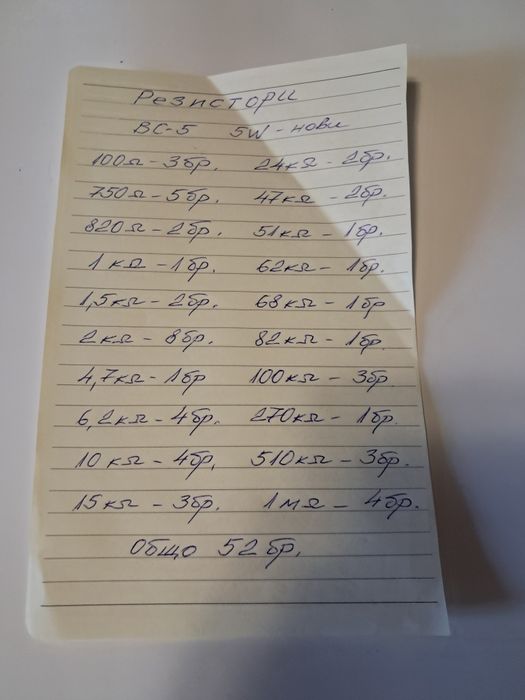 Резистори
ВС-5 5W - нови
100Ω - 3бр. 24кΩ - 2бр.
750Ω - 5бр. 47кΩ - 2бр.
820Ω - 2бр. 51кΩ - 1бр.
1кΩ - 1бр. 62кΩ - 1бр.
1,5кΩ - 2бр. 68кΩ - 1бр
2кΩ - 8бр. 82кΩ - 1бр.
4,7кΩ - 1бр 100кΩ - 3бр.
6,2кΩ - 4бр. 270кΩ - 1бр.
10кΩ - 4бр. 510кΩ - 3бр.
15кΩ - 3бр. 1мΩ - 4бр.
Общо 52бр.